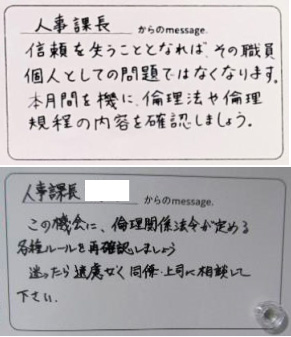 人事課長 からのmessage.
信頼を失うこととなれば、その職員
個人としての問題ではなくなります。
本月間を機に、倫理法や倫理
規程の内容を確認しましょう。
人事課長 からのmessage.
この機会に、倫理関係法令が定める
各種ルールを再確認しましょう
迷ったら遠慮なく同僚・上司に相談して
下さい。